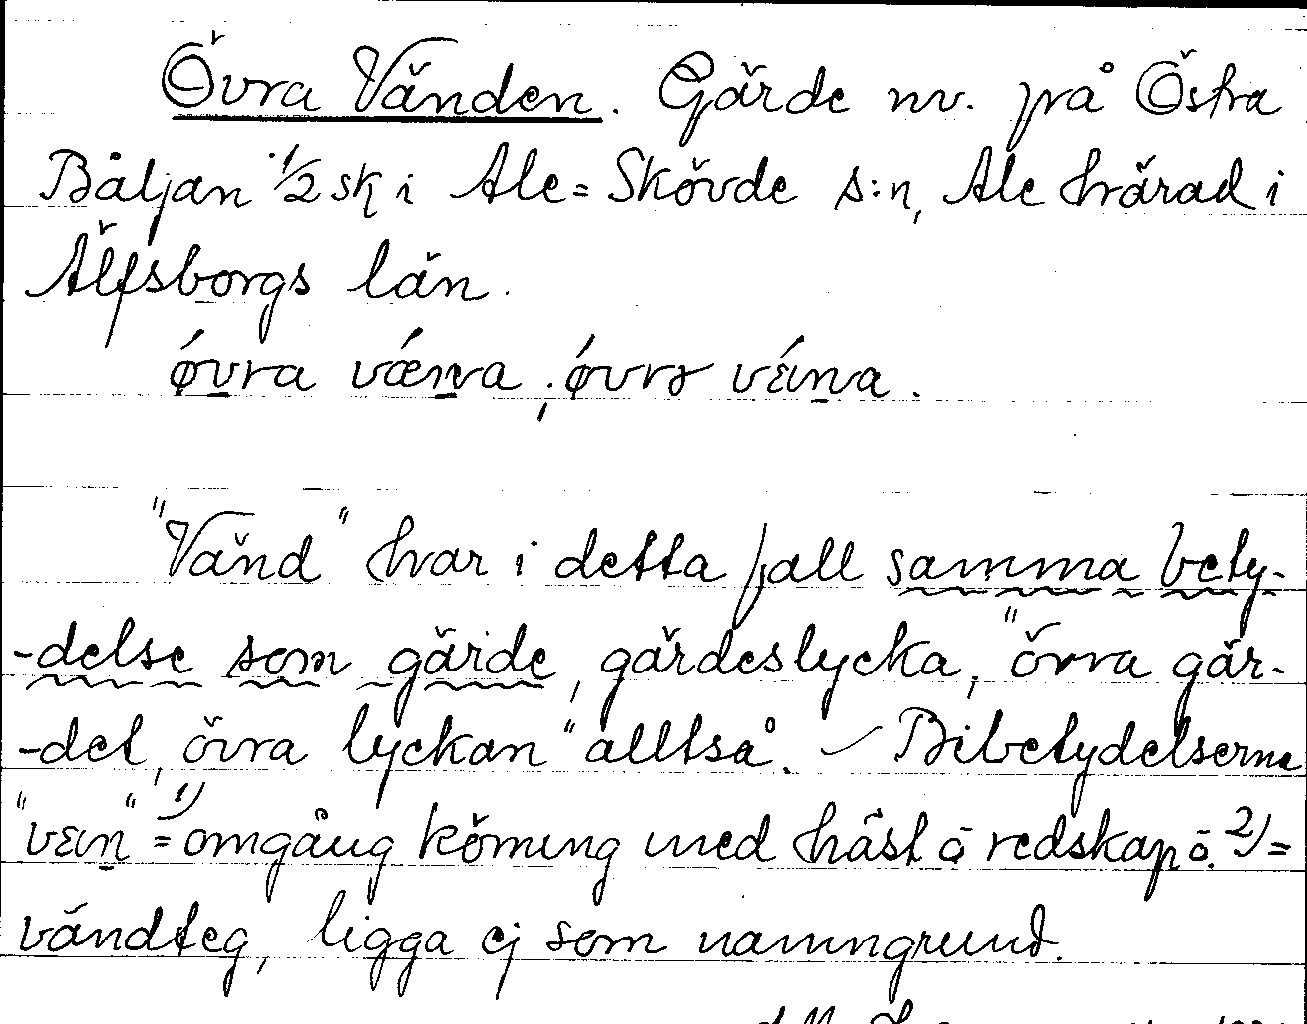 Övra Vänden. Gärde nv. på Östra
Båljan 1/2 sk i Ale=Skövde s:n, Ale härad i
Älfsborgs län.
"Vänd" har i detta fall samma bety-
-delse som gärde, gärdeslycka, "övra gär-
-det, övra lyckan" alltså. – Bibetydelserna
"vεin" = 1) omgång körning med häst o redskap o. 2) =
vändteg, ligga ej som namngrund.